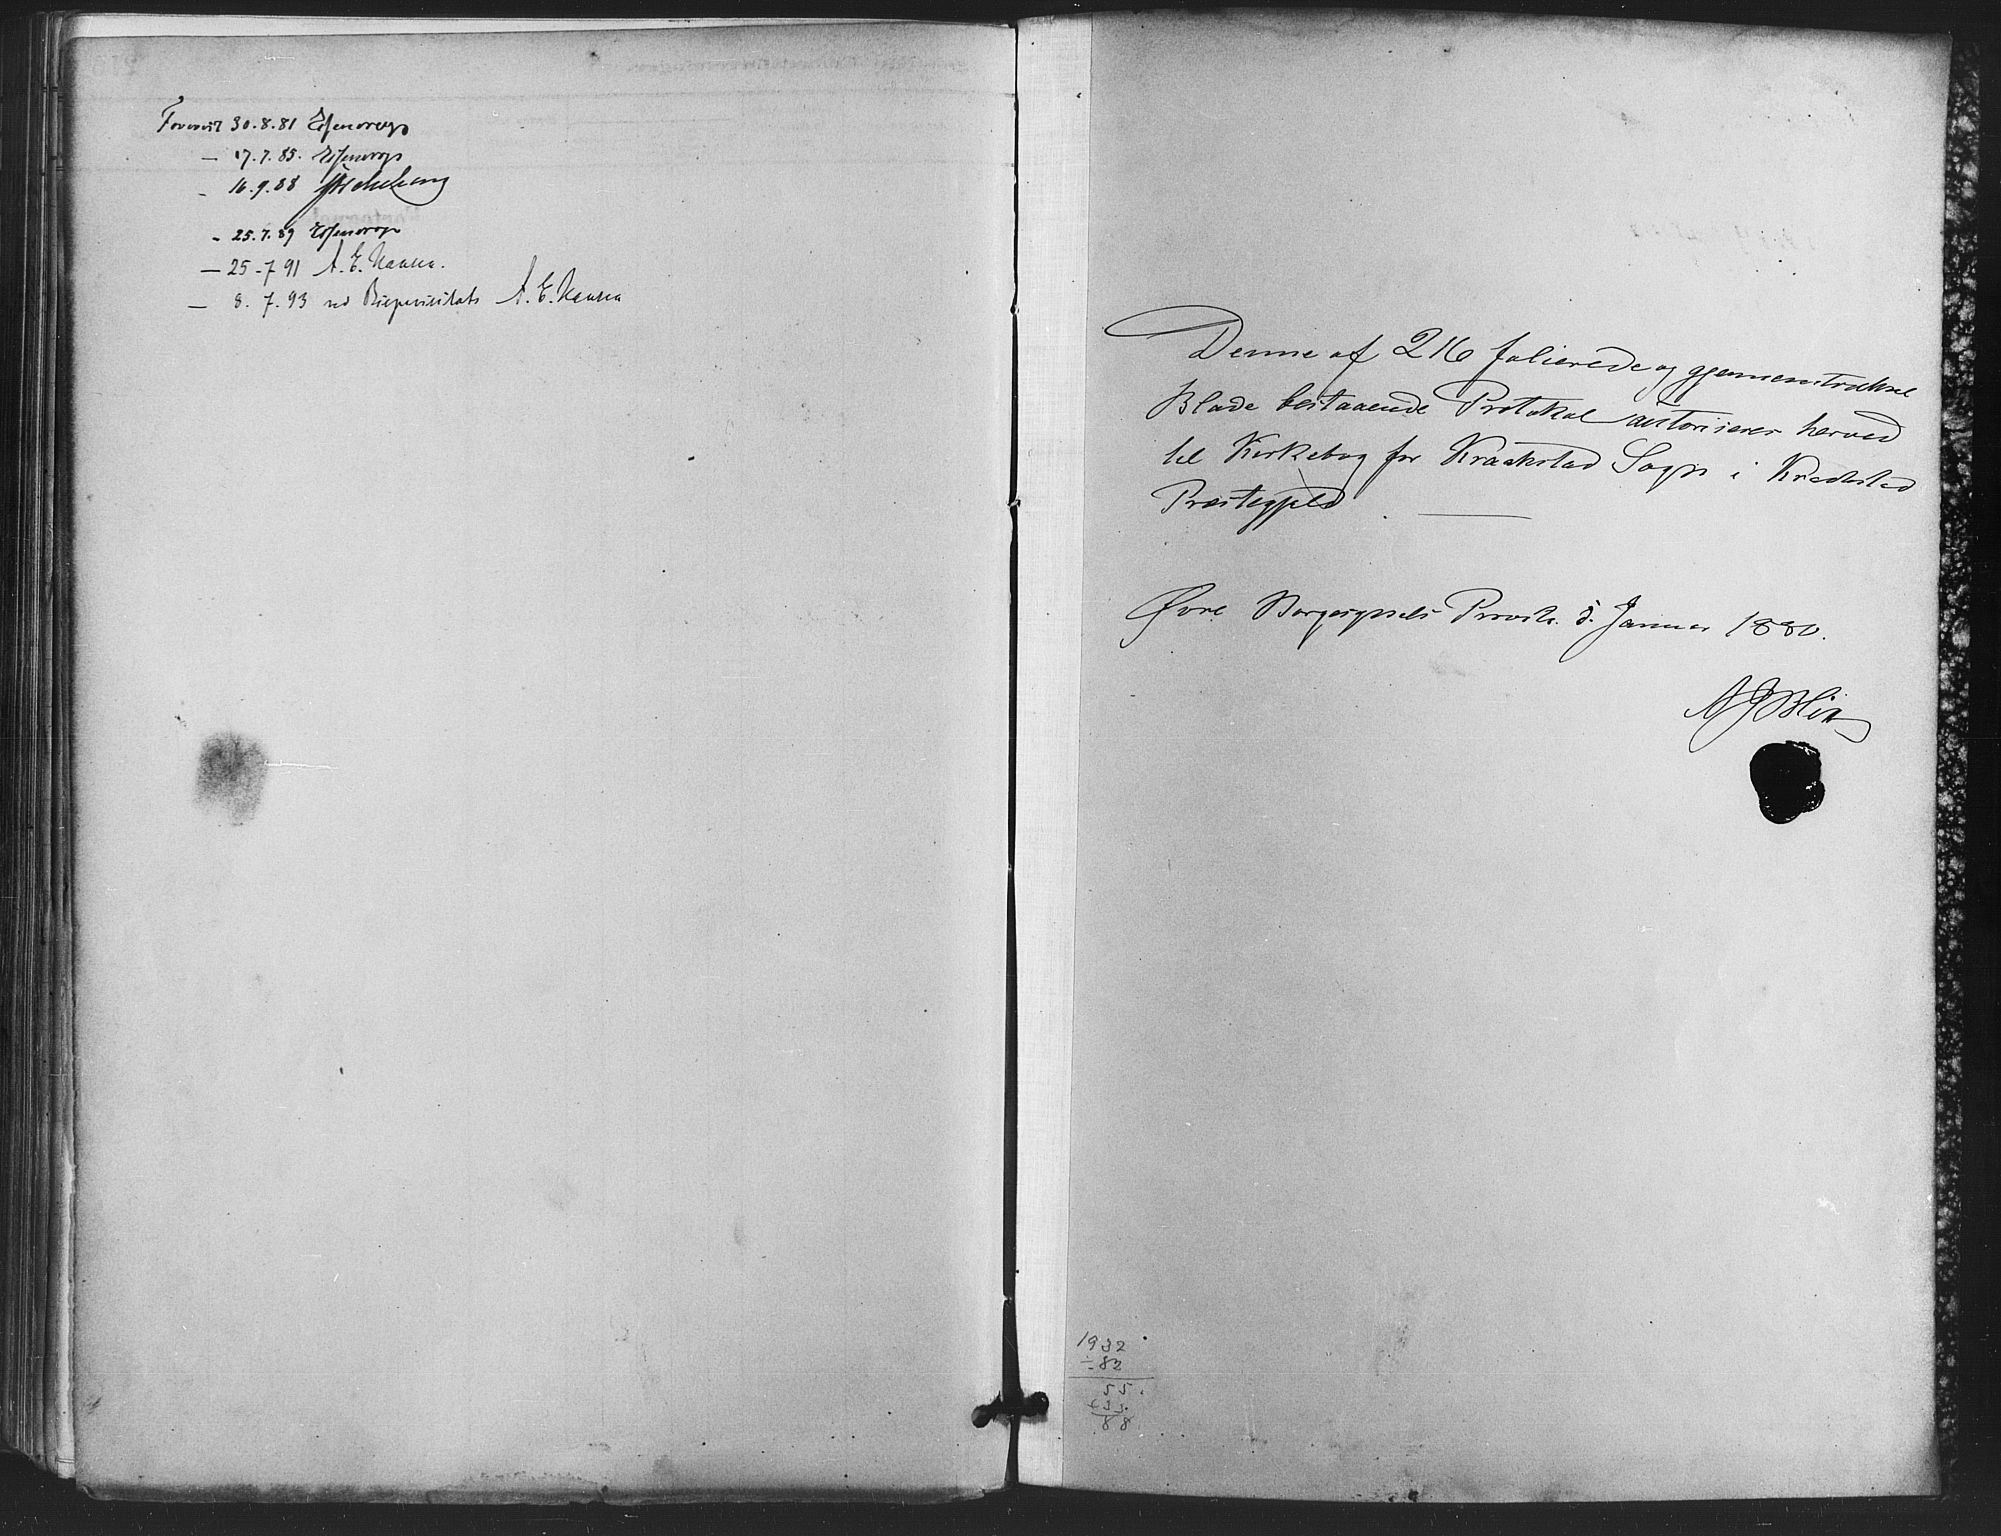 Forevist 30.8.81
— 17.7.85.
- 16.9.88
- 25.7.89
— 25-7 91 A. E. Hansen.
— 8. 7. 93 ved Bispevisitats A. E. Hansen
Denne af 216 folierede og gjennemtrukne
Blade bestaaende Protokol autoriseres herved
til Kirkebog for Kraakstad Sogn i Kraakstad
Præstegjeld
Øvre Borgesyssels Provsti 5. Januar 1880.
1932
÷ 82
55
+33
88